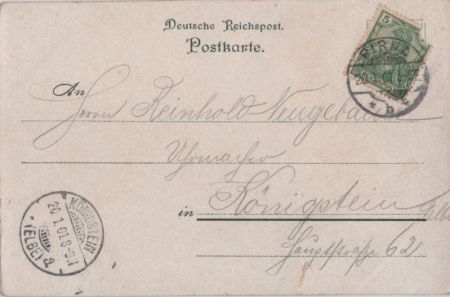 Deutsche Reichspost.
Postkarte.
5
PIRNA
An
Herrn Reinhold Neugebau
Uhrmacher
in Königstein Elbe
Hauptstraße 62
KÖNIGSTEIN
20.1.01.8-9.V
* (ELBE) a